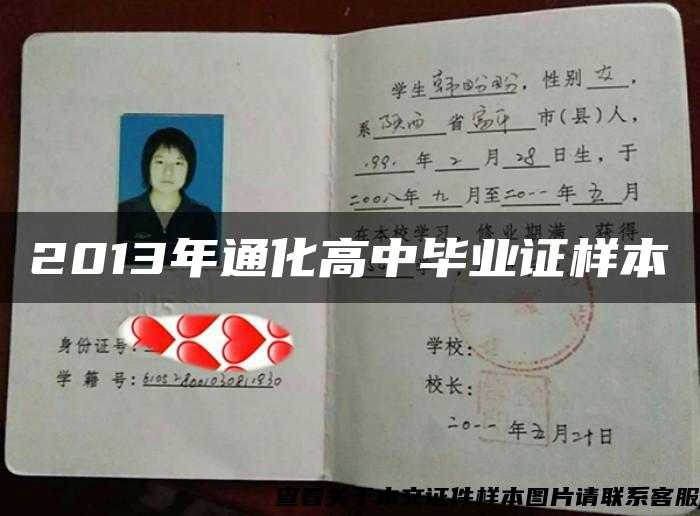 学生韩盼盼，性别女，
系陕西省富平市(县)人，
1991年2月28日生，于
二00八年九月至二0一一年五月
在本校学习，修业期满，获得
2013年通化高中毕业证样本
身份证号：
学籍号：610528001030811930
学校：
校长：
二0一一年五月二十日
查看关于本文证件样本图片请联系客服